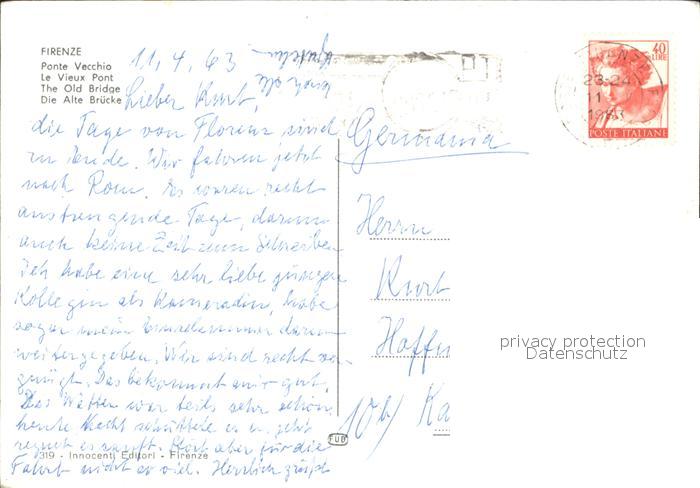 FIRENZE
Ponte Vecchio
Le Vieux Pont
The Old Bridge
Die Alte Brücke
11. 4. 63
Lieber Kurt,
die Tage von Florenz sind
zu Ende. Wir fahren jetzt
nach Rom. Es waren recht
anstrengende Tage, darum
auch keine Zeit zum Schreiben
Ich habe eine sehr liebe jüngere
Kollegin als Kameradin, habe
sogar mein Einzelzimmer darum
weitergegeben. Wir sind recht ver-
gnügt. Das bekommt mir gut.
Das Wetter war teils sehr schön,
heute Nacht schüttete es u. jetzt
regnet es sanft. Stört aber für die
Fahrt nicht so viel. Herzlich grüßt
319 - Innocenti Editori - Firenze
FUB
23-24
11
1963
40
LIRE
POSTE ITALIANE
Germania
Herrn
Kurt
Hoffm
Ka
privacy protection
Datenschutz